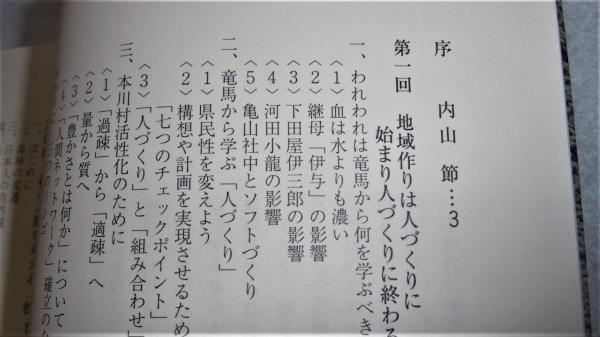 序　内山　節…3
第一回　地域作りは人づくりに
始まり人づくりに終わる
一、われわれは竜馬から何を学ぶべき
〈1〉血は水よりも濃い
〈2〉継母「伊与」の影響
〈3〉下田屋伊三郎の影響
〈4〉河田小龍の影響
〈5〉亀山社中とソフトづくり
二、竜馬から学ぶ「人づくり」
〈1〉県民性を変えよう
〈2〉構想や計画を実現させるため
「七つのチェックポイント」
〈3〉「人づくり」と「組み合わせ」
三、本川村活性化のために
〈1〉「過疎」から「適疎」へ
〈2〉量から質へ
〈3〉「豊かさとは何か」について
〈4〉「人間ネットワーク」確立のた